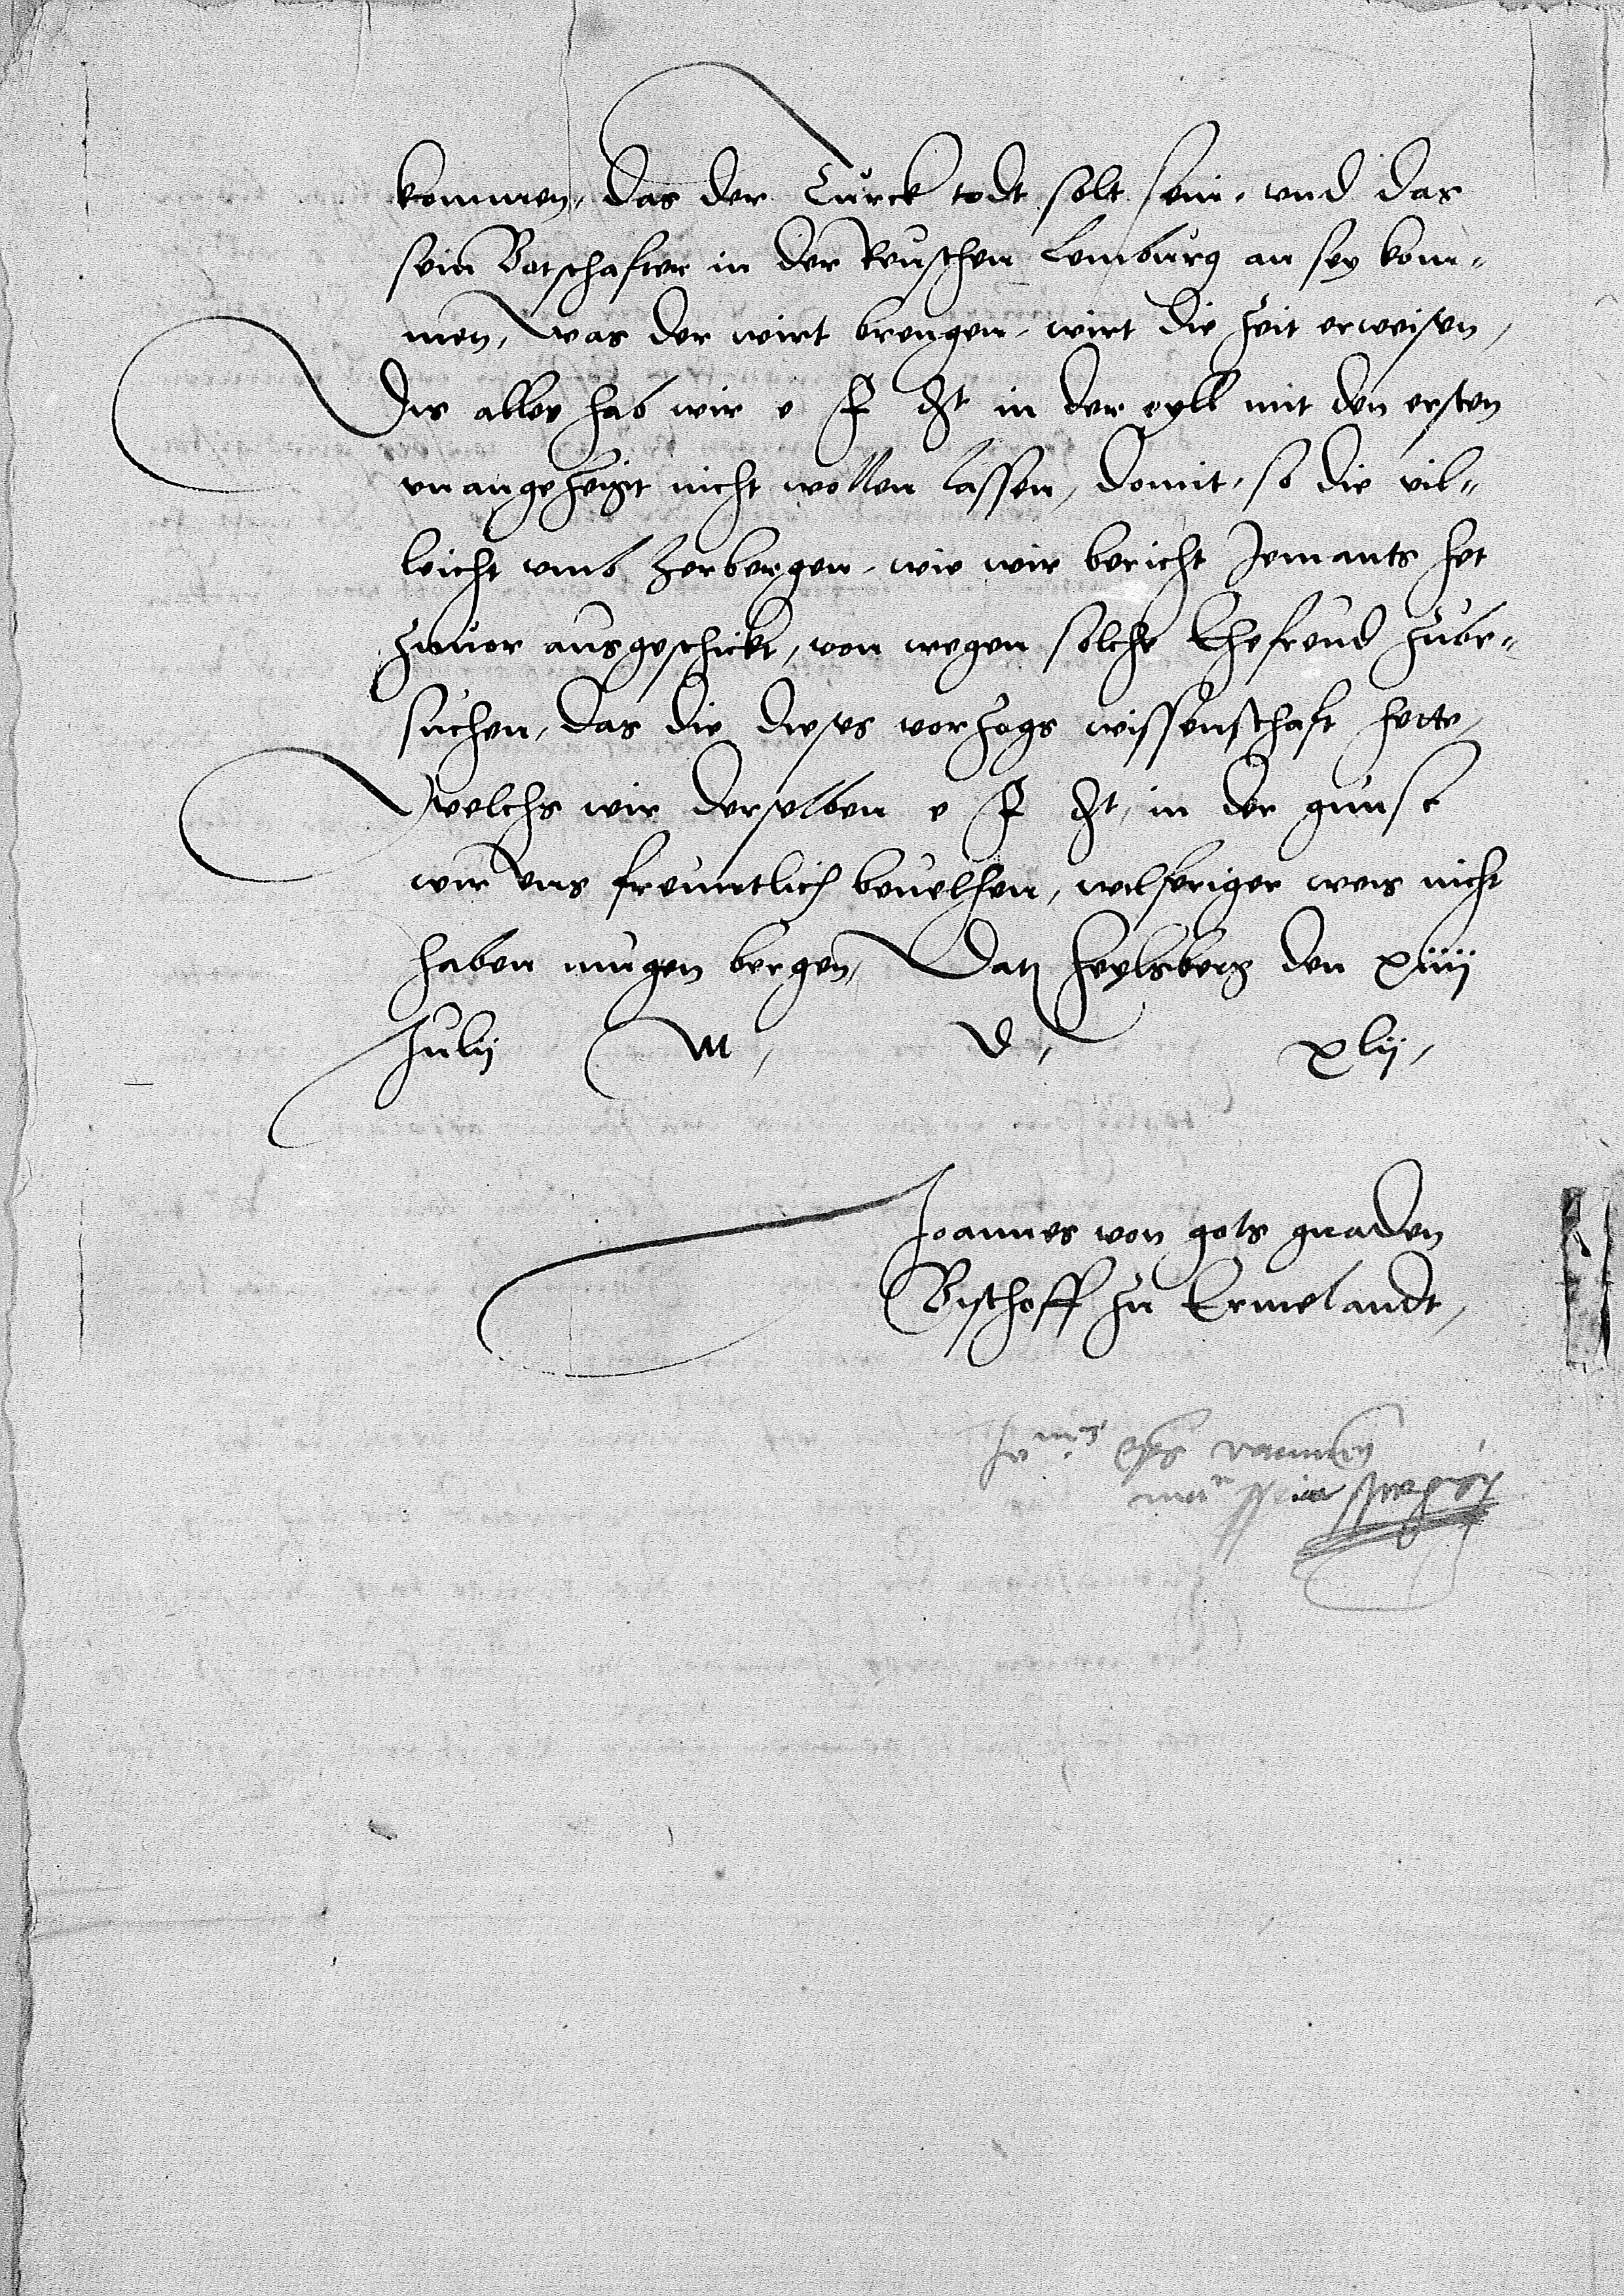 kommen, das der Turck todt solt sein, und das
sein Botschafter in der Reuschen Lemburg an sey kom-
men, was der wirt brengen, wirt die zeit erweisen,
Dis alles hab wir e F Dt in der eyll mit den ersten
unangezeigt nicht wollen lassen, domit, so die vil-
leicht umb herbergen, wie wir bericht Jemants het
zuuor ausgeschickt, von wegen solche Ehefreud zube-
suchen, das die dieses vorzogs wissenschaft hette,
Welchs wir derselben e F Dt, in der gunst
wir uns freuntlich beuelhen, wilferiger weis nicht
haben mugen bergen, Datj Heylsberg den xiiij
Julij M, D, xlij,
Joannes von gots gnaden
Bischoff zu Ermelandt,